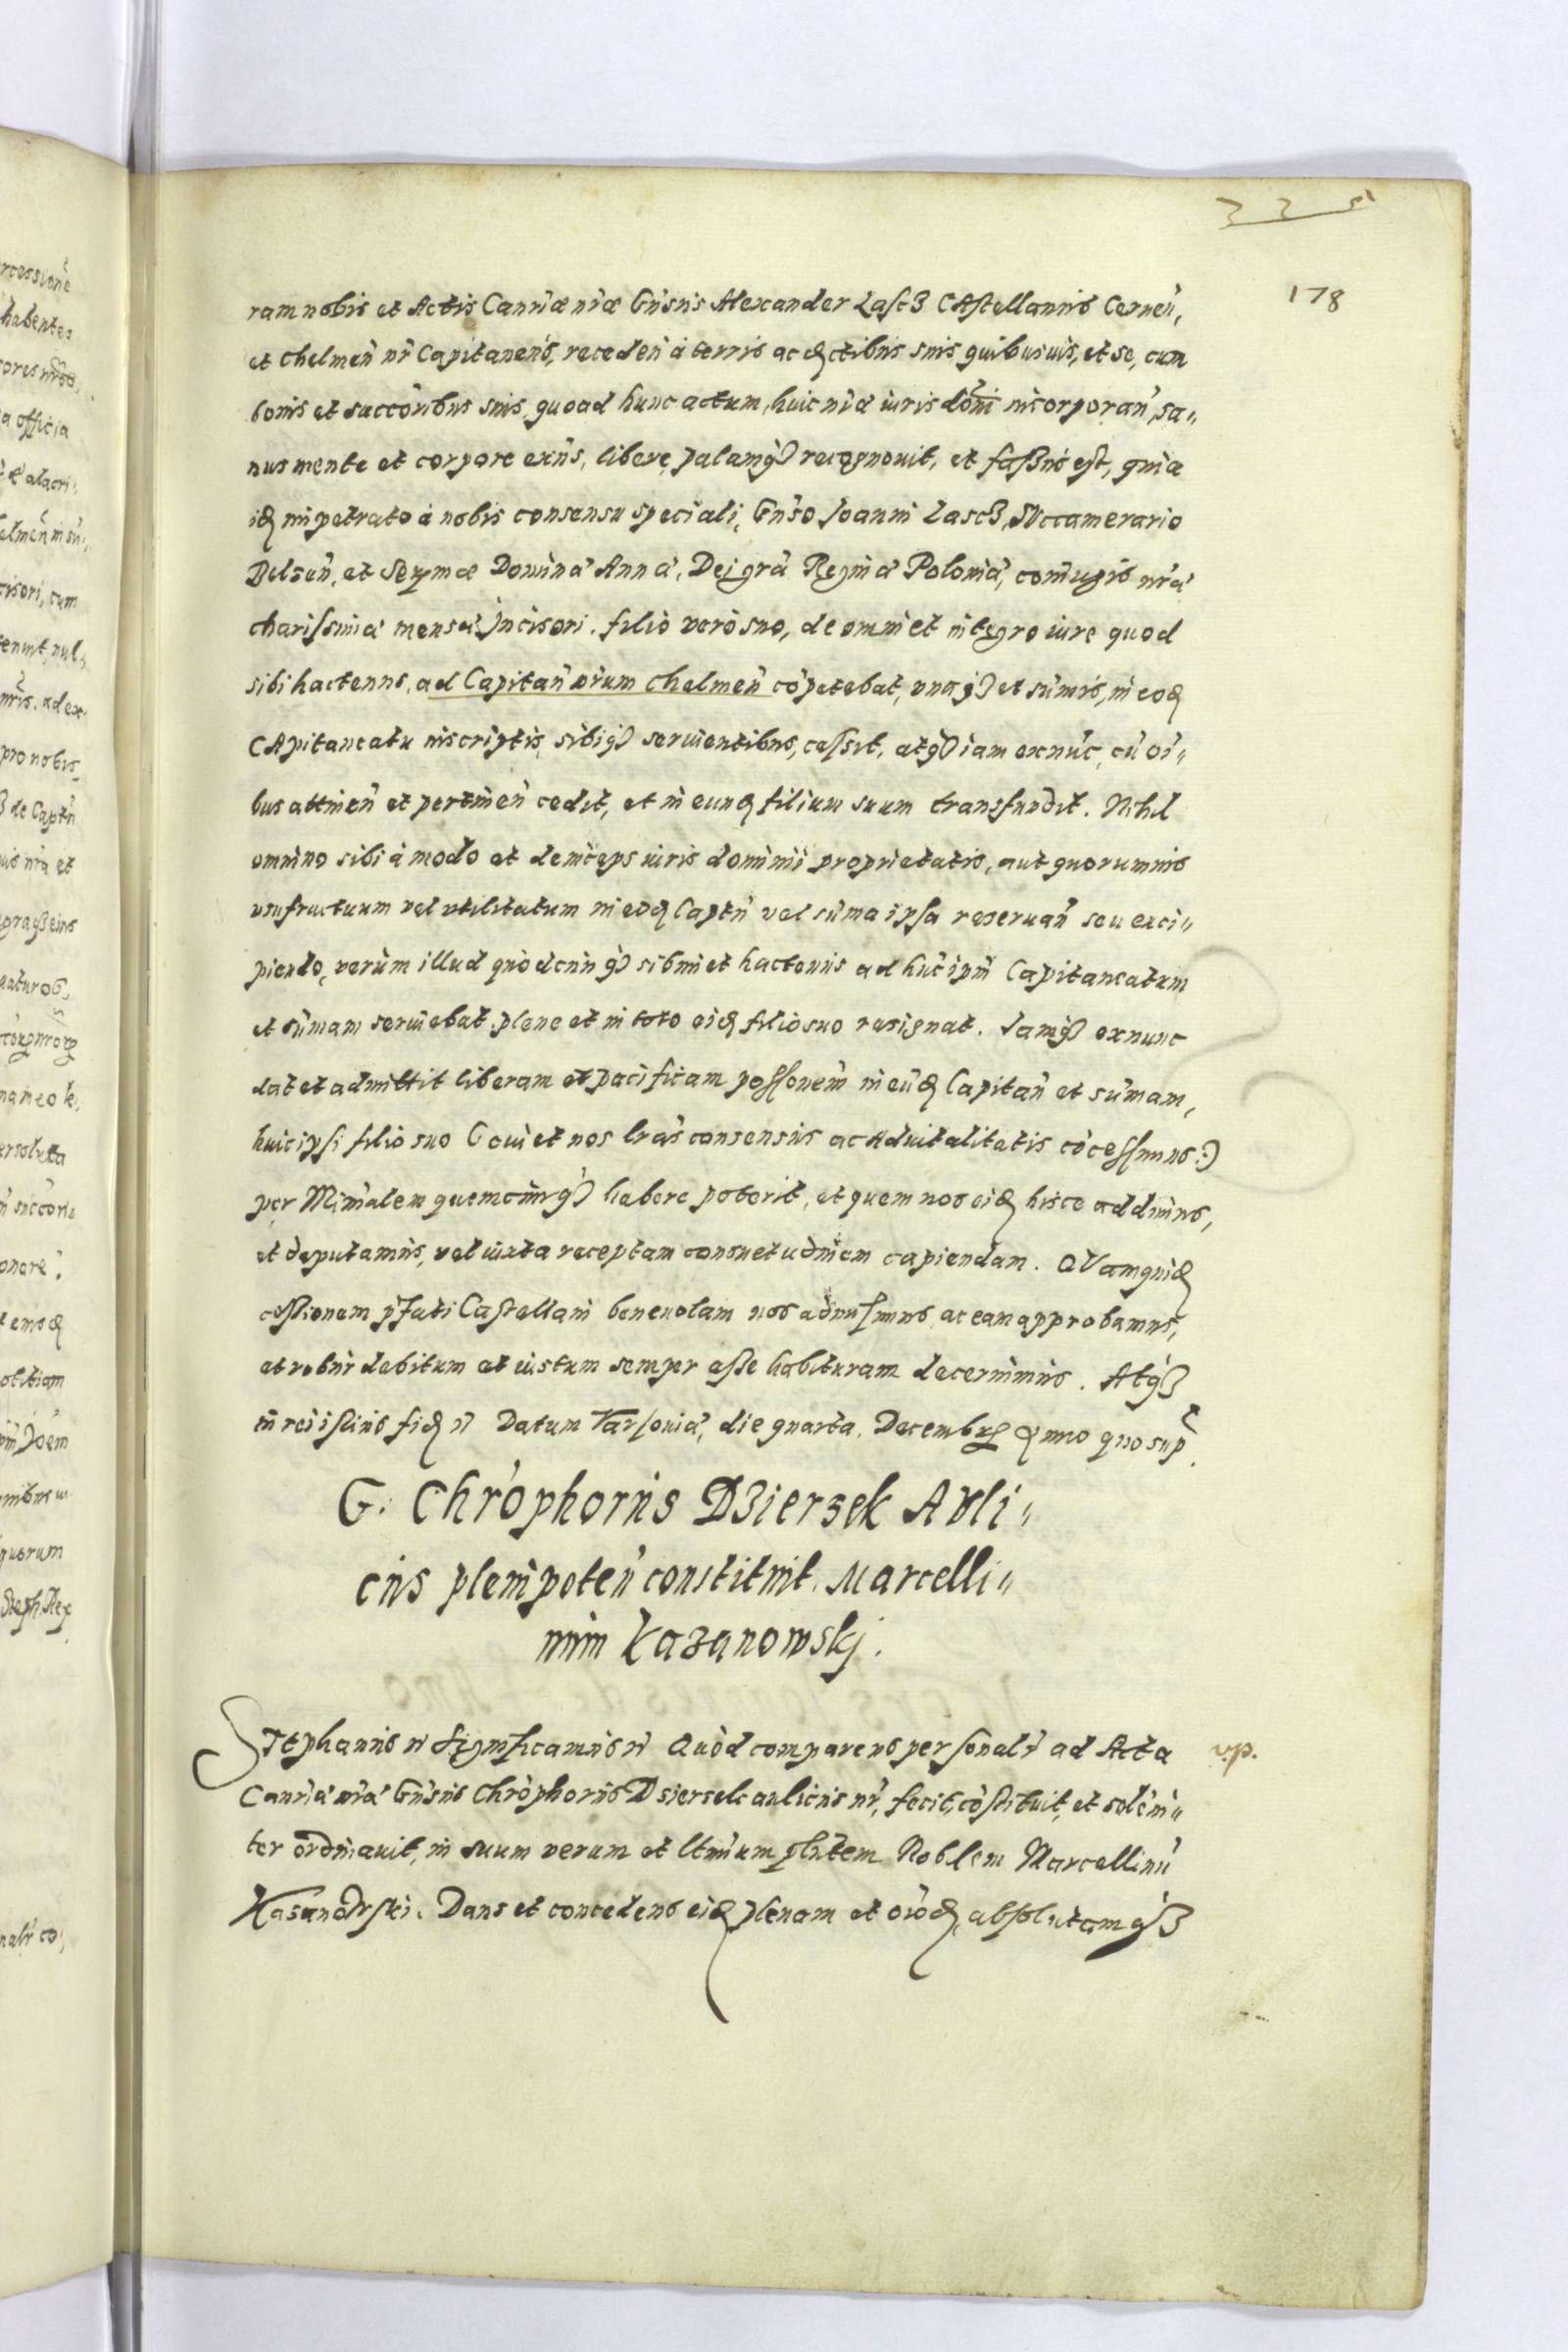 335
178
ram nobis et Actis Canriæ nræ Gnsus Alexander Lascz CAstellanus Cernen,
et Chelmen nr Capitaneus, receden à terris ac distibus suis quibusuis, et se, cum
bonis et succoribus suis, quoad hunc actum, huic nræ iuris domi incorporan, sa„
nus mente et corpore exns, libere, palamq3 recognouit, et faßus est, quia
is impetrato à nobis consensu speciali, Gnso Joanni Lascz, SVccamerario
Belsen, et Sermæ Dominæ Annæ, Dei gra Reginæ Poloniæ, coniugis nræ
charissimæ mensæ Incisori, filio vero suo, de omni et integro iure quod
sibi hactenus, ad Capitan nrum Chelmen copetebat, vnaq3 et sumis, in eod
CApitaneatu inscriptis, sibiq3 seruientibus, cessit, atq3 iam exnuc, cu oi„
bus attinen et pertinen cedit, et in eund filium suum transfundit. Nihil
omnino sibi à modo et deinceps iuris dominii proprietatis, aut quorumuis
vsufructuum vel vtilitatum in eod Captu vel suma ipsa reseruan seu exci„
piendo, verùm illud quodcunq3 sibimet hactenus ad huc ipm Capitaneatum
et sumam seruiebat plene et in toto eid filio suo resignat. Iamq3 exnunc
dat et admittit liberam et pacificam possonem in eud Capitan et sumam,
huic ipsi filio suo (cui et nos lras consensus ac Aduitalitatis cocessimus:)
per Minialem quemcunq3 habere poterit, et quem nos eid hisce addimus,
et deputamus, vel iuxta receptam consuetudinem capiendam. QVamquid
cessionem pfati Castellani beneuolam nos admisimus, ac eam approbamus,
et robur debitum et iustum semper esse habituram decernimus. Atq3
in rei istius fid rc Datum Varsouiæ, die quarta, Decembris Anno quo sup.
G. Chrophorus Dzierzek AVli„
cus plenipoten constituit Marcelli„
num Kazanowskj.
STephanus rc Significamus rc Quòd comparens personalr ad Acta
v.p.
Canriæ nræ Gnsus Chrophorus Dsierzek aulicus nr, fecit, costituit, et solem„
ter ordinauit, in suum verum et ltmum plntem Noblem Marcellinu
Kasanowski. Dans et concedens eid plenam et oiod, absolutamq3